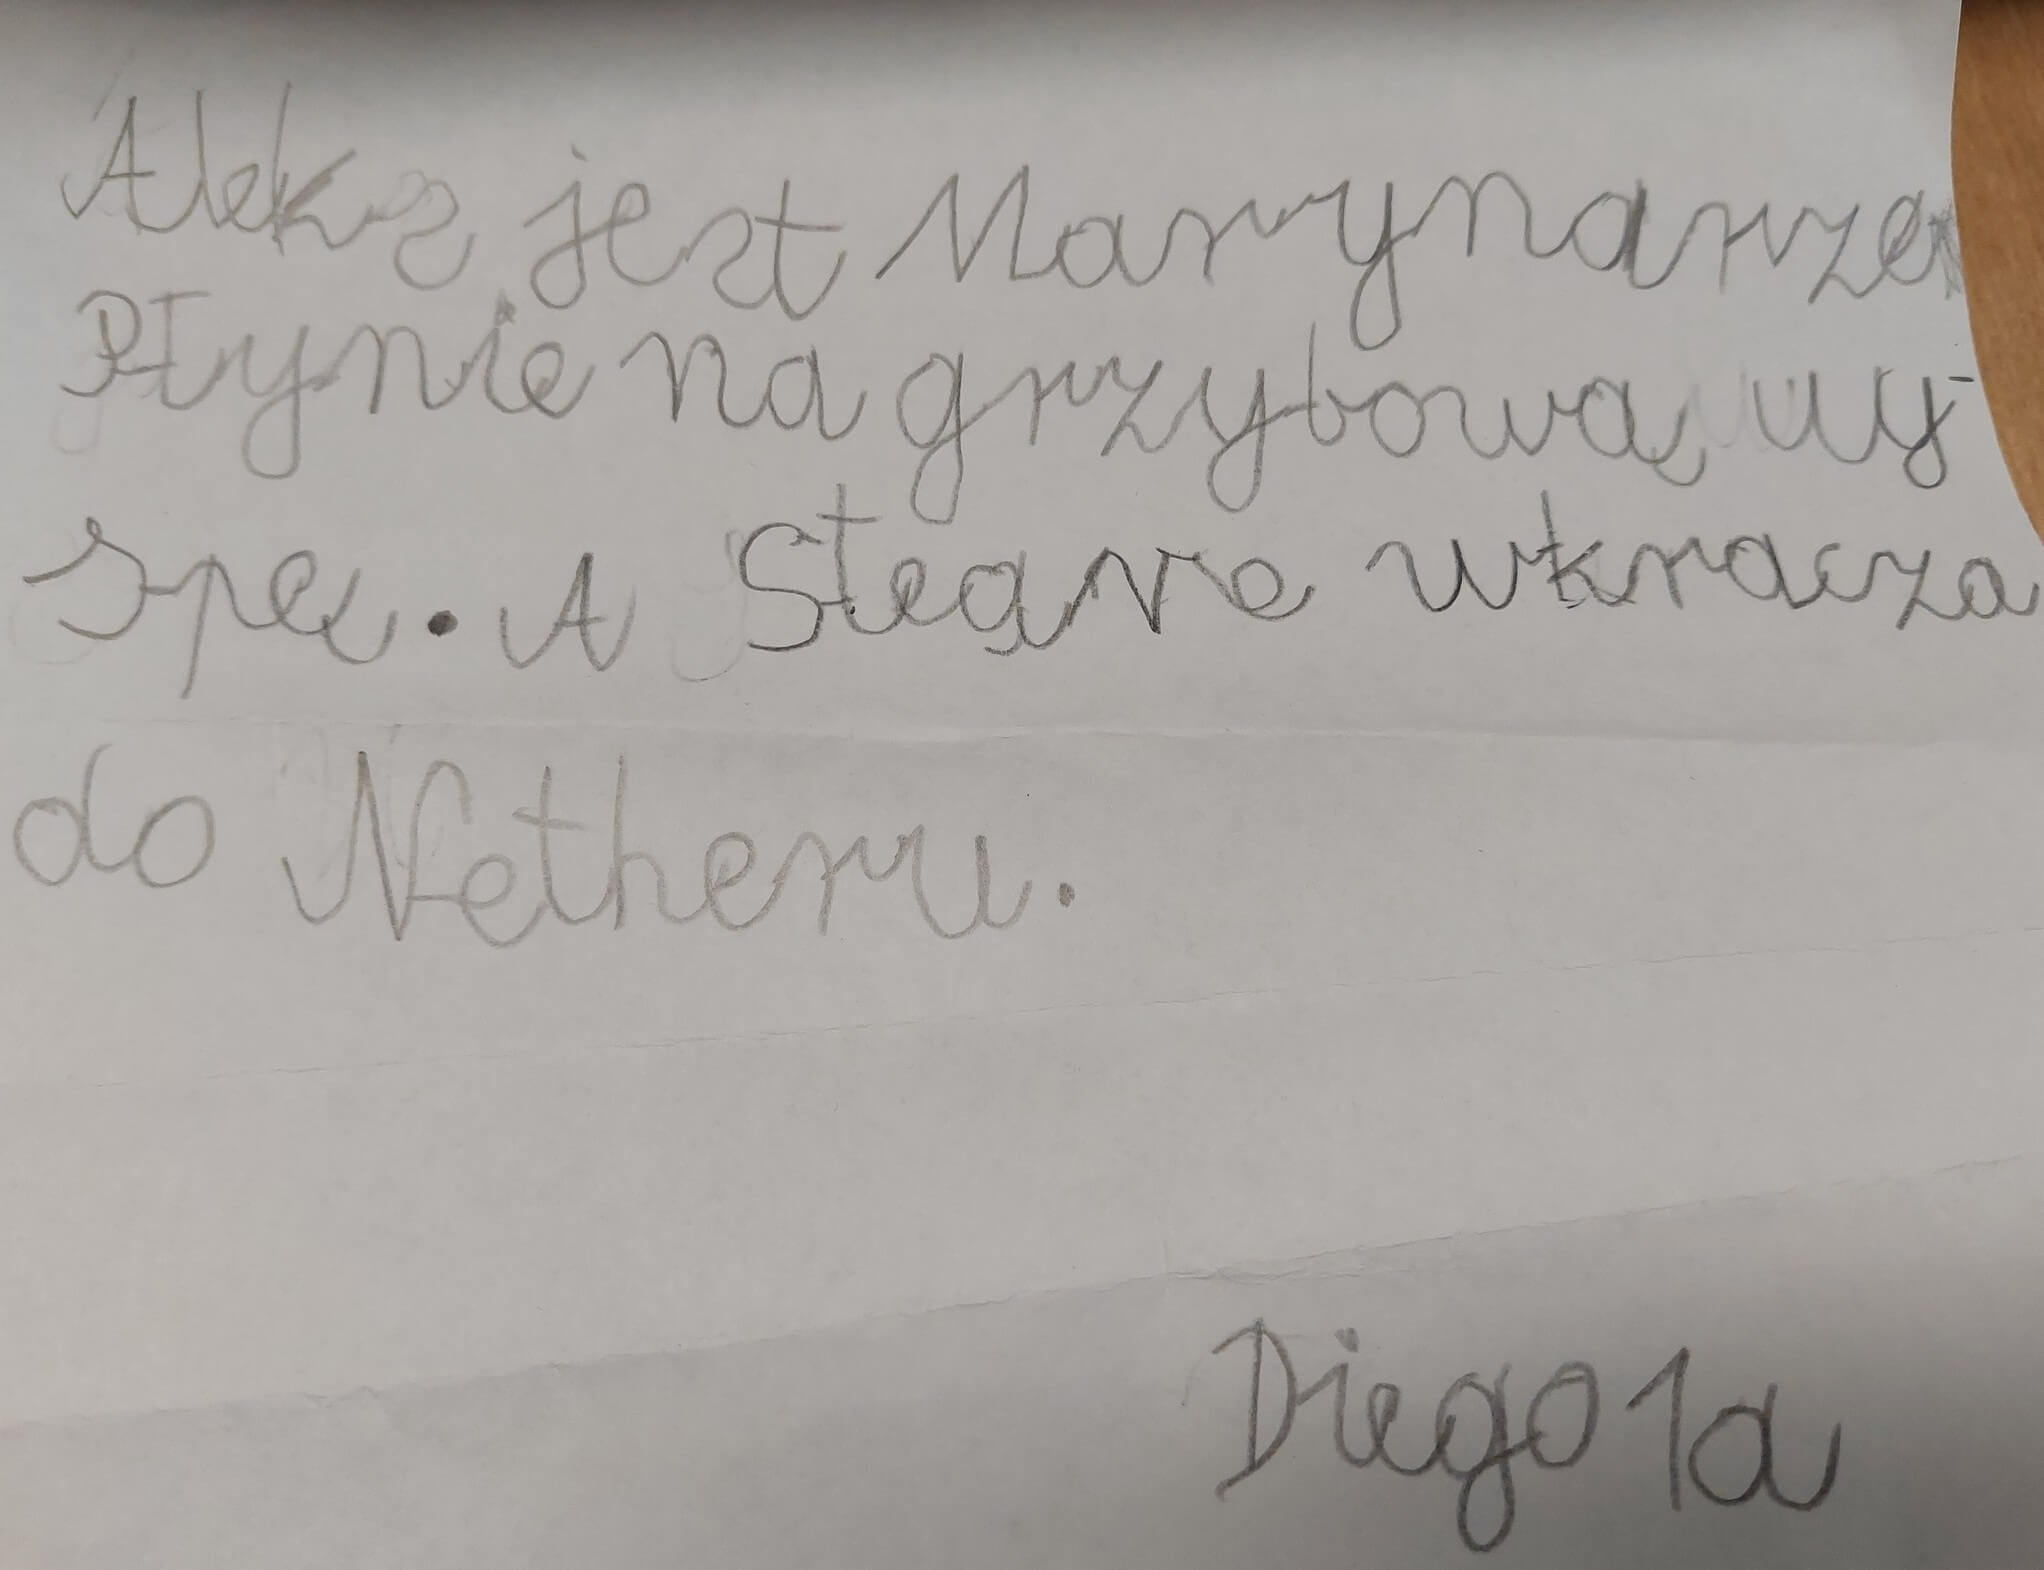 Aleks jest Marynarze
Płynie na grzybową wy-
spe. A Steave wkracza
do Netheru.
Diego 1a